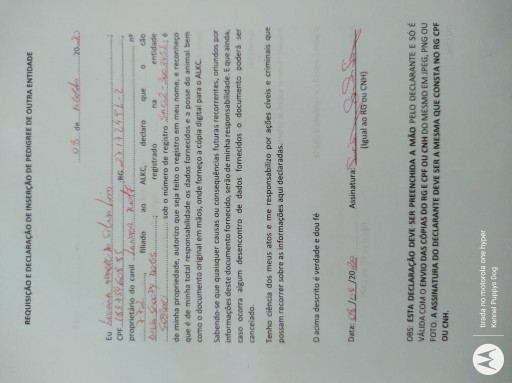 REQUISIÇÃO E DECLARAÇÃO DE INSERÇÃO DE PEDIGREE DE OUTRA ENTIDADE
de Agosto 2020
Eu
CPF RG
proprietário do canil nº
filiado ao ALKC, declaro que o cão
registrado na entidade
sob o número de registro é
de minha propriedade, autorizo que seja feito o registro em meu nome, e reconheço
que é de minha total responsabilidade os dados fornecidos e a posse do animal bem
como o documento original em mãos, onde forneço a cópia digital para o ALKC.
Sabendo-se que quaisquer causas ou consequências futuras recorrentes, oriundos por
informações deste documento fornecido, serão de minha responsabilidade. E que ainda,
caso ocorra algum desencontro de dados fornecidos o documento poderá ser
cancelado.
Tenho ciência dos meus atos e me responsabilizo por ações cíveis e criminais que
possam recorrer sobre as informações aqui declaradas.
O acima descrito é verdade e dou fé
Data: /2020 Assinatura:
(Igual ao RG ou CNH)
OBS: ESTA DECLARAÇÃO DEVE SER PREENCHIDA A MÃO PELO DECLARANTE E SÓ É
VÁLIDA COM O ENVIO DAS CÓPIAS DO RG E CPF OU CNH DO MESMO EM JPEG, PNG OU
FOTO. A ASSINATURA DO DECLARANTE DEVE SER A MESMA QUE CONSTA NO RG CPF
OU CNH.
tirada no motorola one hyper
Kennel Puppys Dog